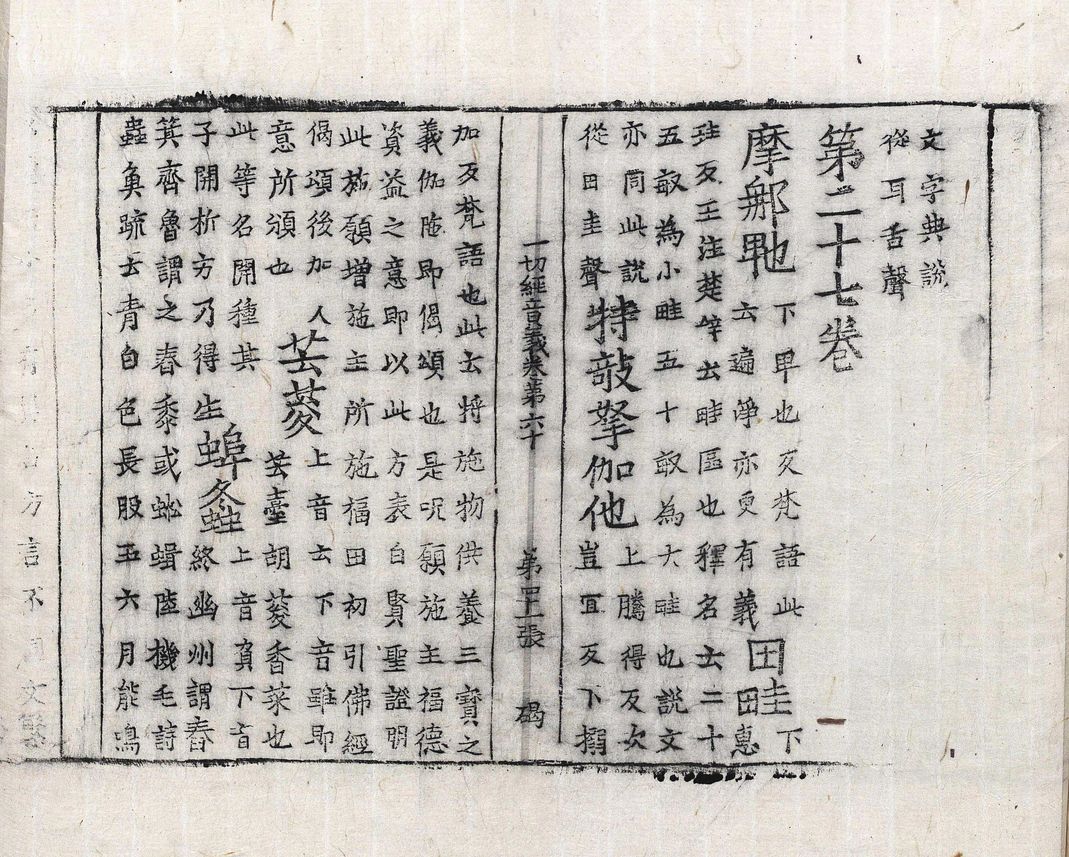 文字典說
從耳舌聲
第二十七卷
摩那
下甲也反梵語此
云遍淨亦更有義
田畦
下
惠
珪反王注楚辝云畦區也釋名云二十
五畝為小畦五十畝為大畦也說文
亦同此說
從田圭聲
特敧拏伽他
上騰得反次
豈冝反下搦
一切經音義卷第六十 第四十一張 碣
加反梵語也此云將施物供養三寶之
義伽陁即偈頌也是呪願施主福德
資益之意即以此方表白賢聖證明
此施願增施主所施福田初引佛經
偈頌後加人
意所頒也
芸荾
上音云下音雖即
芸臺胡荾香菜也
此等名開種其
子開析方乃得生
蜯螽
上音負下音
終幽州謂舂
箕齊魯謂之舂黍或蚣蝑陸機毛詩
蟲魚疏云青白色長股五六月能鳴
方言不同文繁